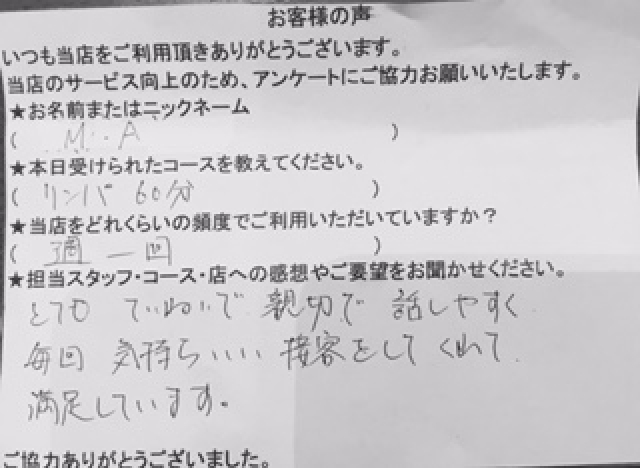 お客様の声
いつも当店をご利用頂きありがとうございます。
当店のサービス向上のため、アンケートにご協力お願いいたします。
★お名前またはニックネーム
( M.A )
★本日受けられたコースを教えてください。
( リンパ 60分 )
★当店をどれくらいの頻度でご利用いただいていますか？
( 週一回 )
★担当スタッフ・コース・店への感想やご要望をお聞かせください。
とても ていねいで 親切で 話しやすく
毎回 気持ちいい 接客をしてくれて
満足しています。
ご協力ありがとうございました。